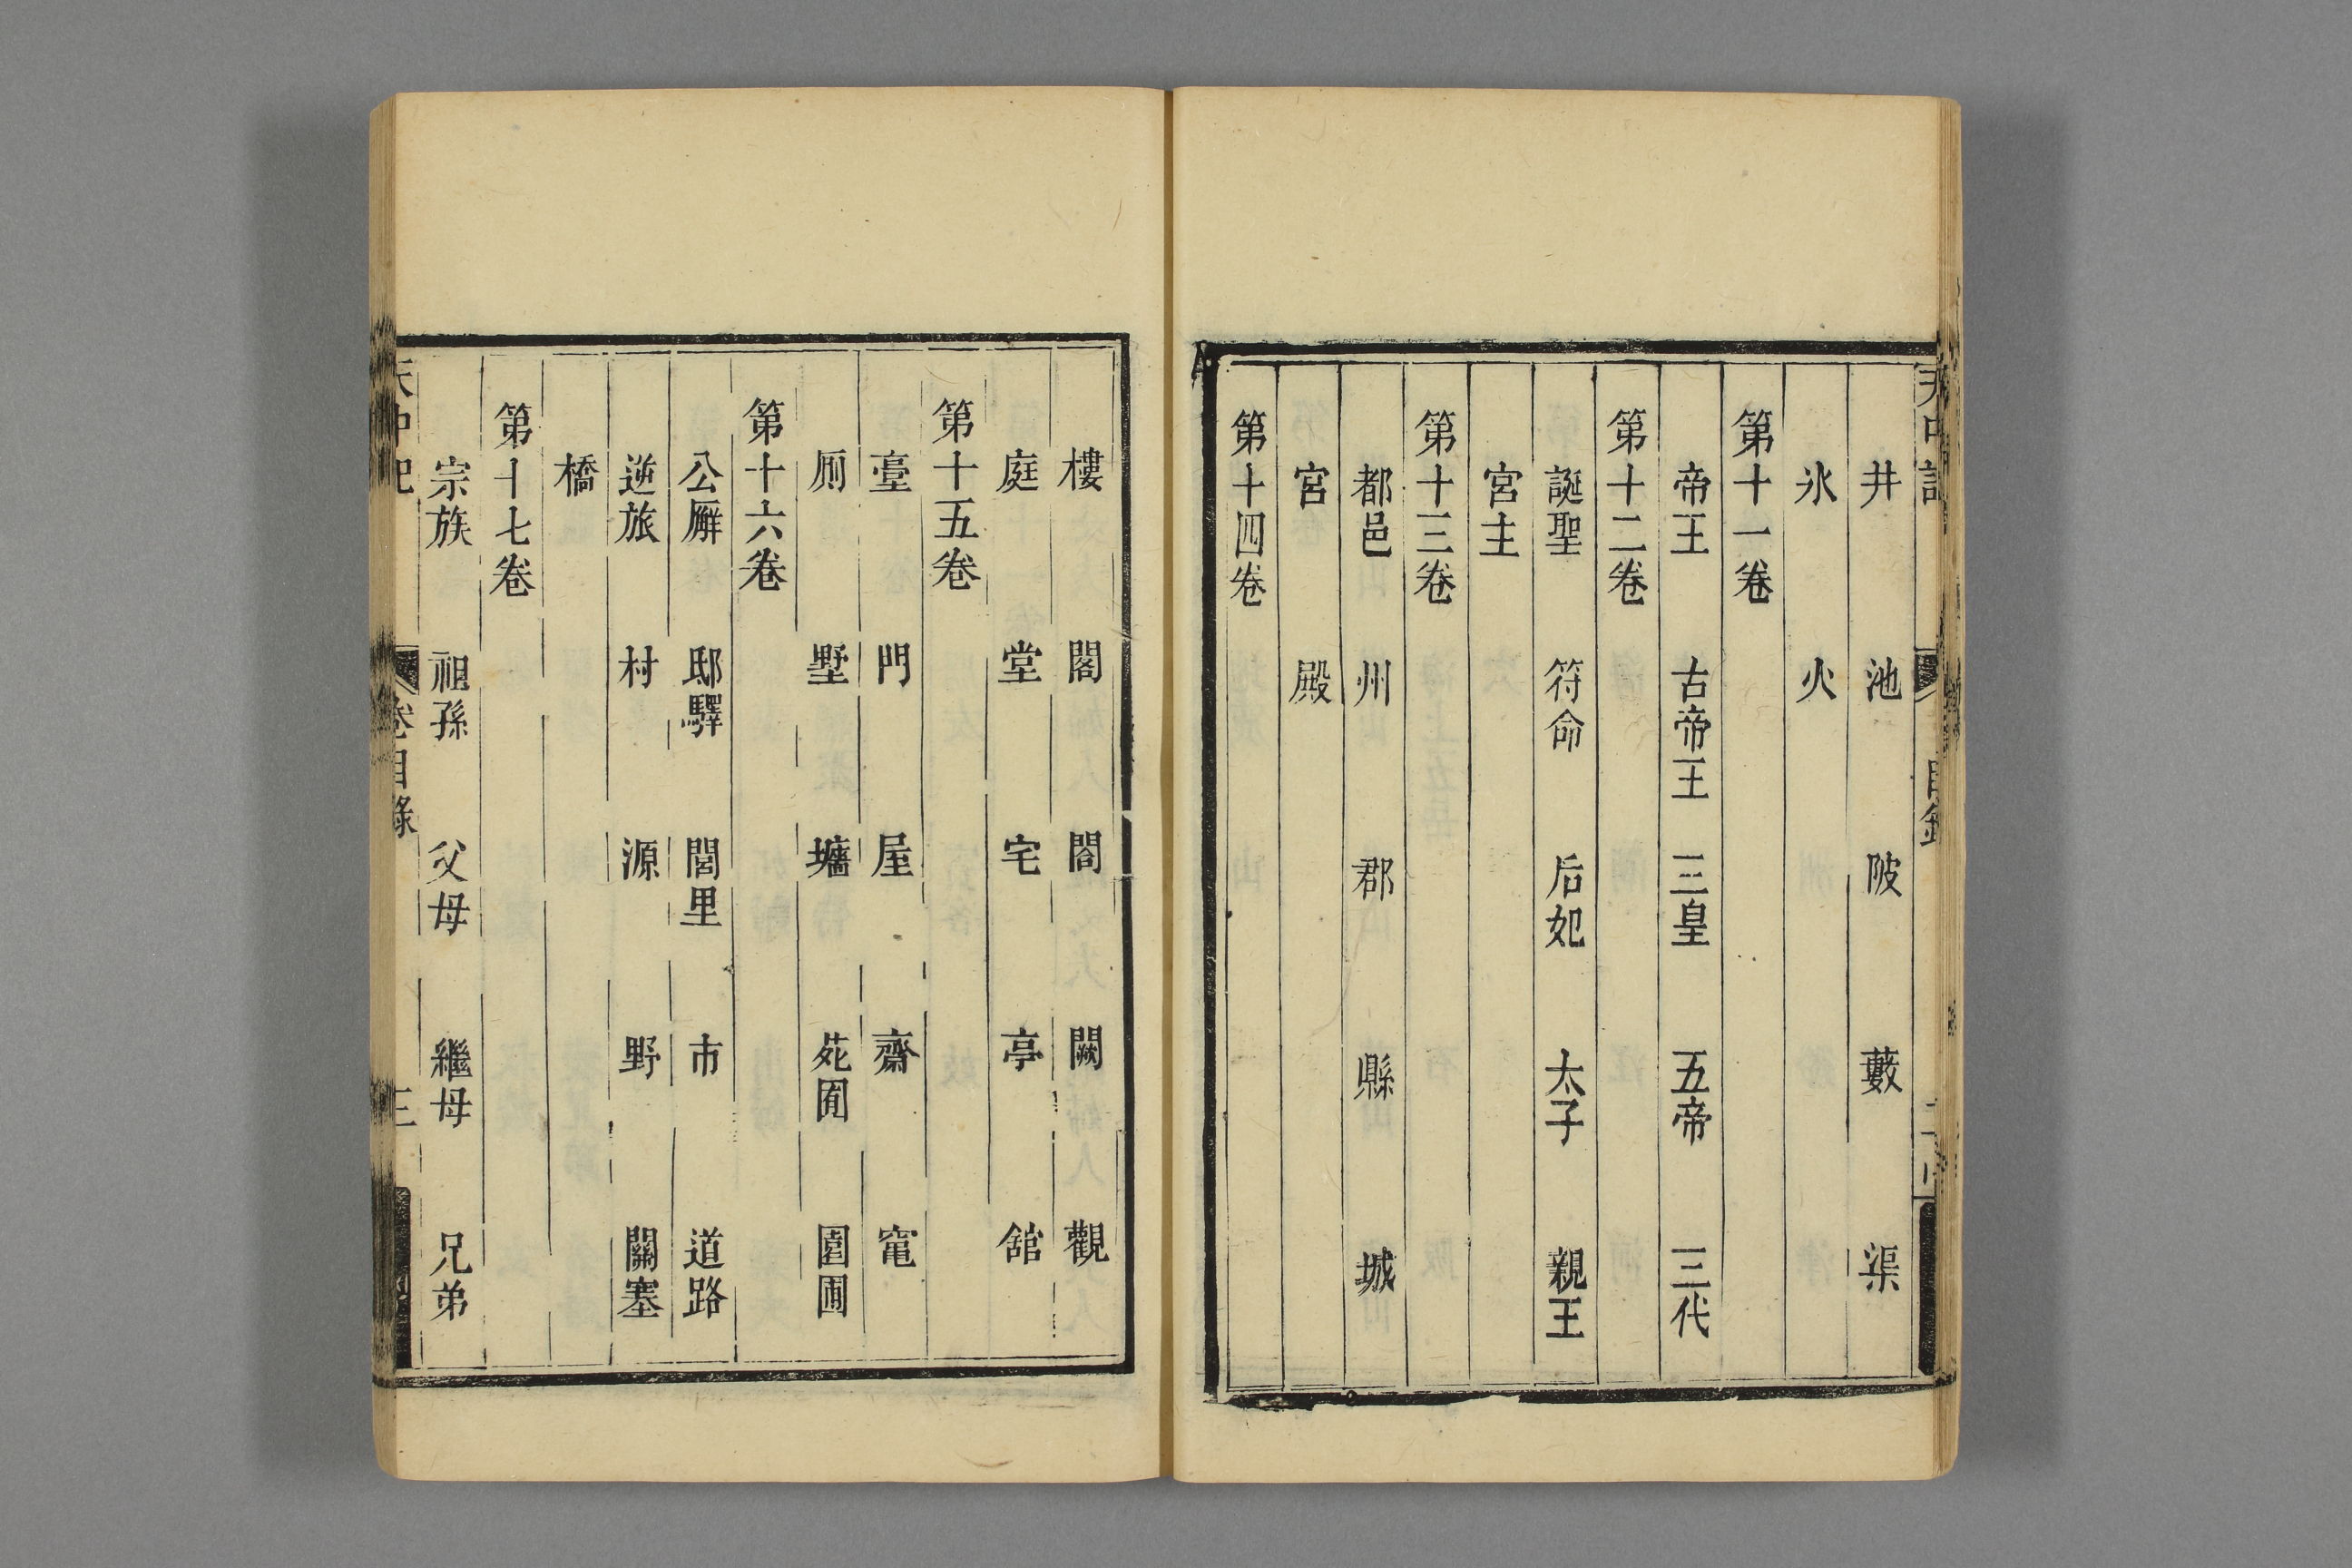 天中記 目錄 二
井 池 陂 藪 渠
氷 火
第十一卷
帝王 古帝王 三皇 五帝 三代
第十二卷
誕聖 符命 后妃 太子 親王
宮主
第十三卷
都邑 州 郡 縣 城
宮 殿
第十四卷
樓 閣 閤 闕 觀
庭 堂 宅 亭 舘
第十五卷
臺 門 屋 齋 竃
厠 墅 墻 苑囿 園圃
第十六卷
公廨 邸驛 閭里 市 道路
逆旅 村 源 野 關塞
橋
第十七卷
宗族 祖孫 父母 繼母 兄弟
天中記 卷目錄 三